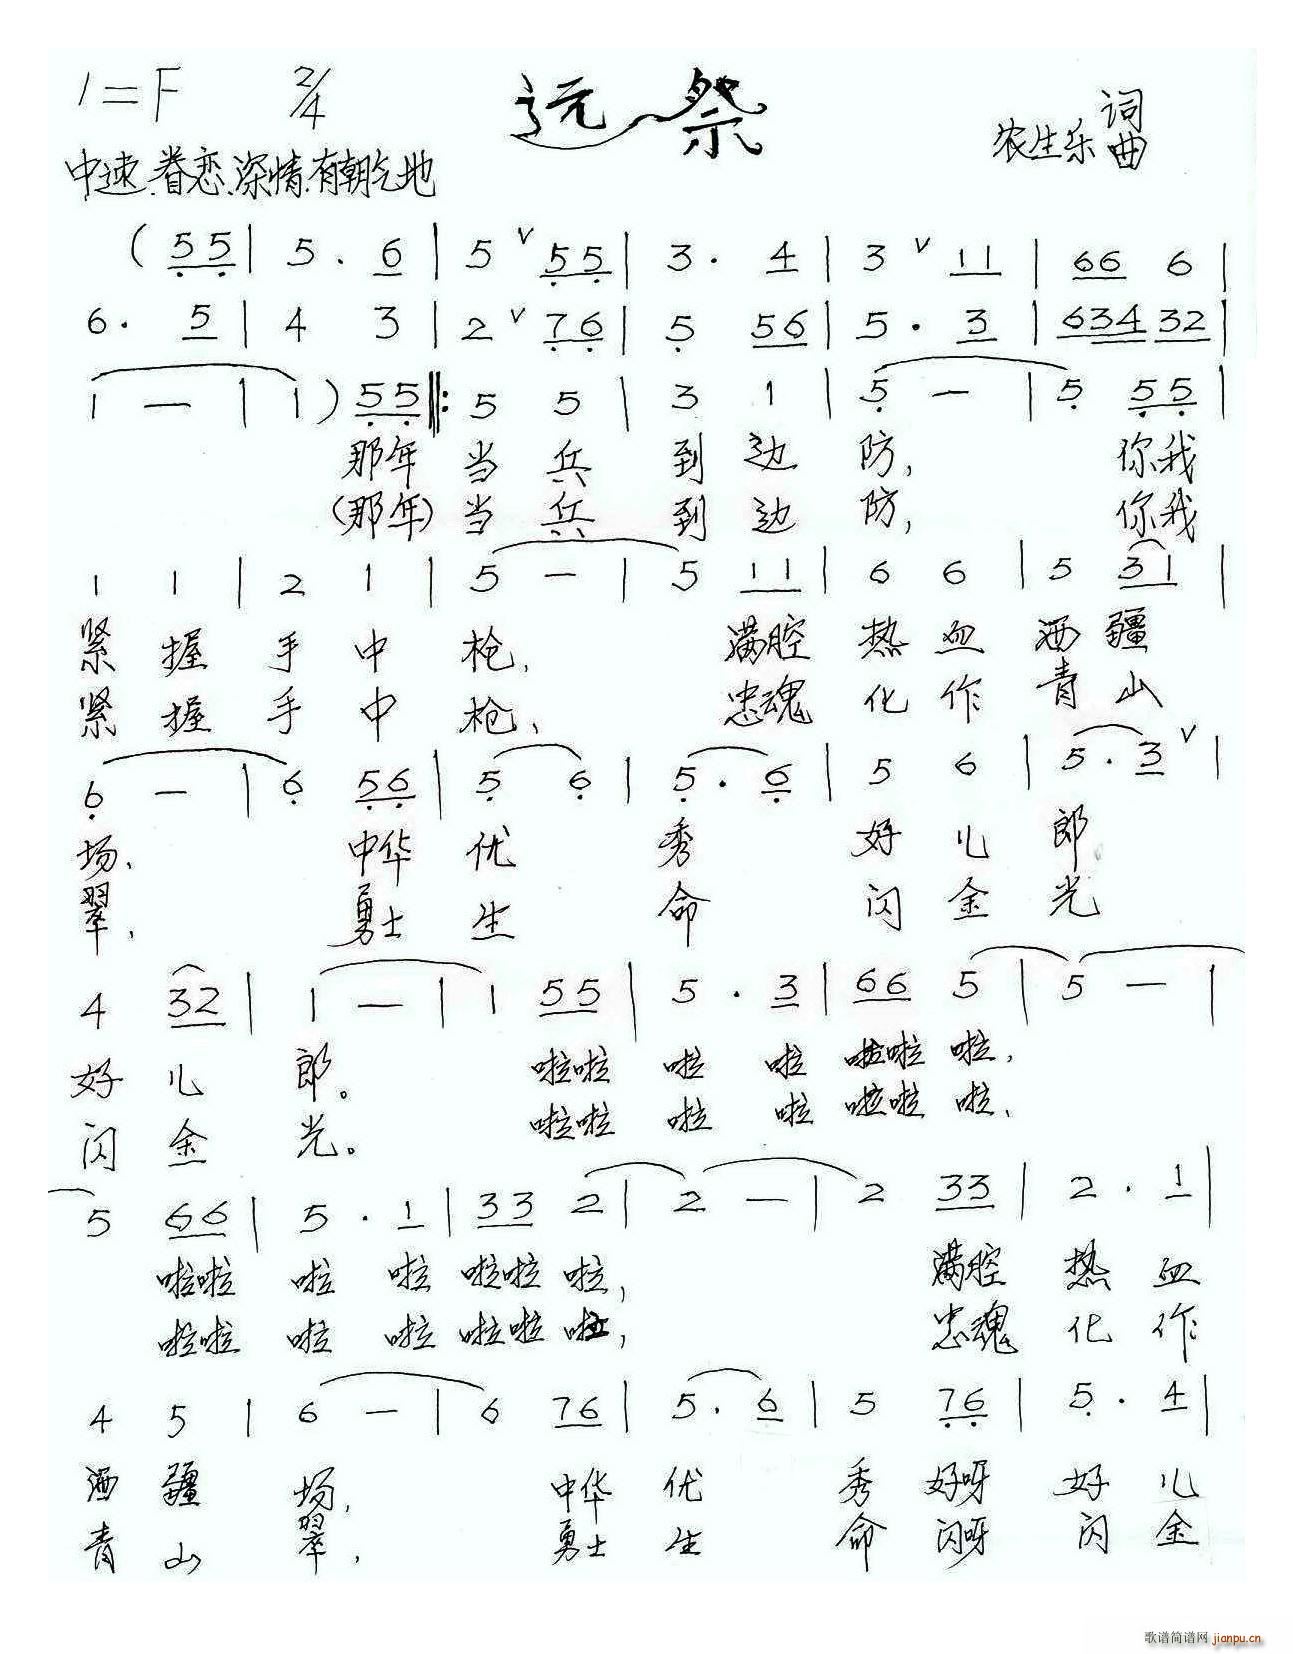 1=F 2/4 远祭 农生乐 词曲
中速、眷恋、深情、有朝气地
( 5 5 | 5 . 6 | 5 ∨ 5 5 | 3 . 4 | 3 ∨ 1 1 | 6 6 6 |
6 . 5 | 4 3 | 2 ∨ 7 6 | 5 5 6 | 5 . 3 | 6 3 4 3 2 |
1 — | 1 ) 5 5 ‖: 5 5 | 3 1 | 5 — | 5 5 5 |
那年 当 兵 到 边 防, 你我
(那年) 当 兵 到 边 防, 你我
1 1 | 2 1 | 5 — | 5 1 1 | 6 6 | 5 3 1 |
紧 握 手 中 枪, 满腔 热 血 洒 疆
紧 握 手 中 枪, 忠魂 化 作 青 山
6 — | 6 5 6 | 5 6 | 5 . 6 | 5 6 | 5 . 3 ∨ |
场、 中华 优 秀 好 儿 郎
翠, 勇士 生 命 闪 金 光
4 3 2 | 1 — | 1 5 5 | 5 . 3 | 6 6 5 | 5 — |
好 儿 郎。 啦啦 啦 啦 啦啦 啦,
闪 金 光。 啦啦 啦 啦 啦啦 啦、
5 6 6 | 5 . 1 | 3 3 2 | 2 — | 2 3 3 | 2 . 1 |
啦啦 啦 啦 啦啦 啦, 满腔 热 血
啦啦 啦 啦 啦啦 啦, 忠魂 化 作
4 5 | 6 — | 6 7 6 | 5 . 6 | 5 7 6 | 5 . 4 |
洒 疆 场, 中华 优 秀 好呀 好 儿
青 山 翠, 勇士 生 命 闪呀 闪 金
歌谱简谱网 jianpu.cn